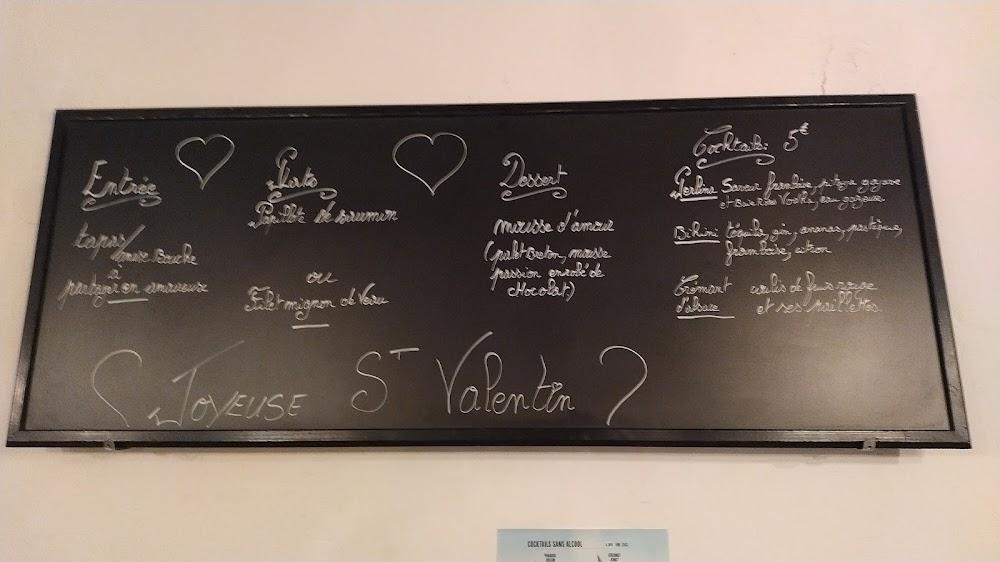 Entrée
tapas/
amuse Bouche
à
partager en amoureux
Plats
Papillote de saumon
ou
Filet mignon de Veau
Dessert
mousse d'amour
(palet Breton, mousse
passion enrobé de
chocolat)
Cocktails: 5€
Saveur framboise, pitaya goyave
et Vodka, eau gazeuse
Bikini téquila, gin, ananas, pastèque,
framboise, citron
Crémant coulis de fruis rouge
d'alsace et ses paillettes.
Joyeuse St Valentin
COCKTAILS SANS ALCOOL